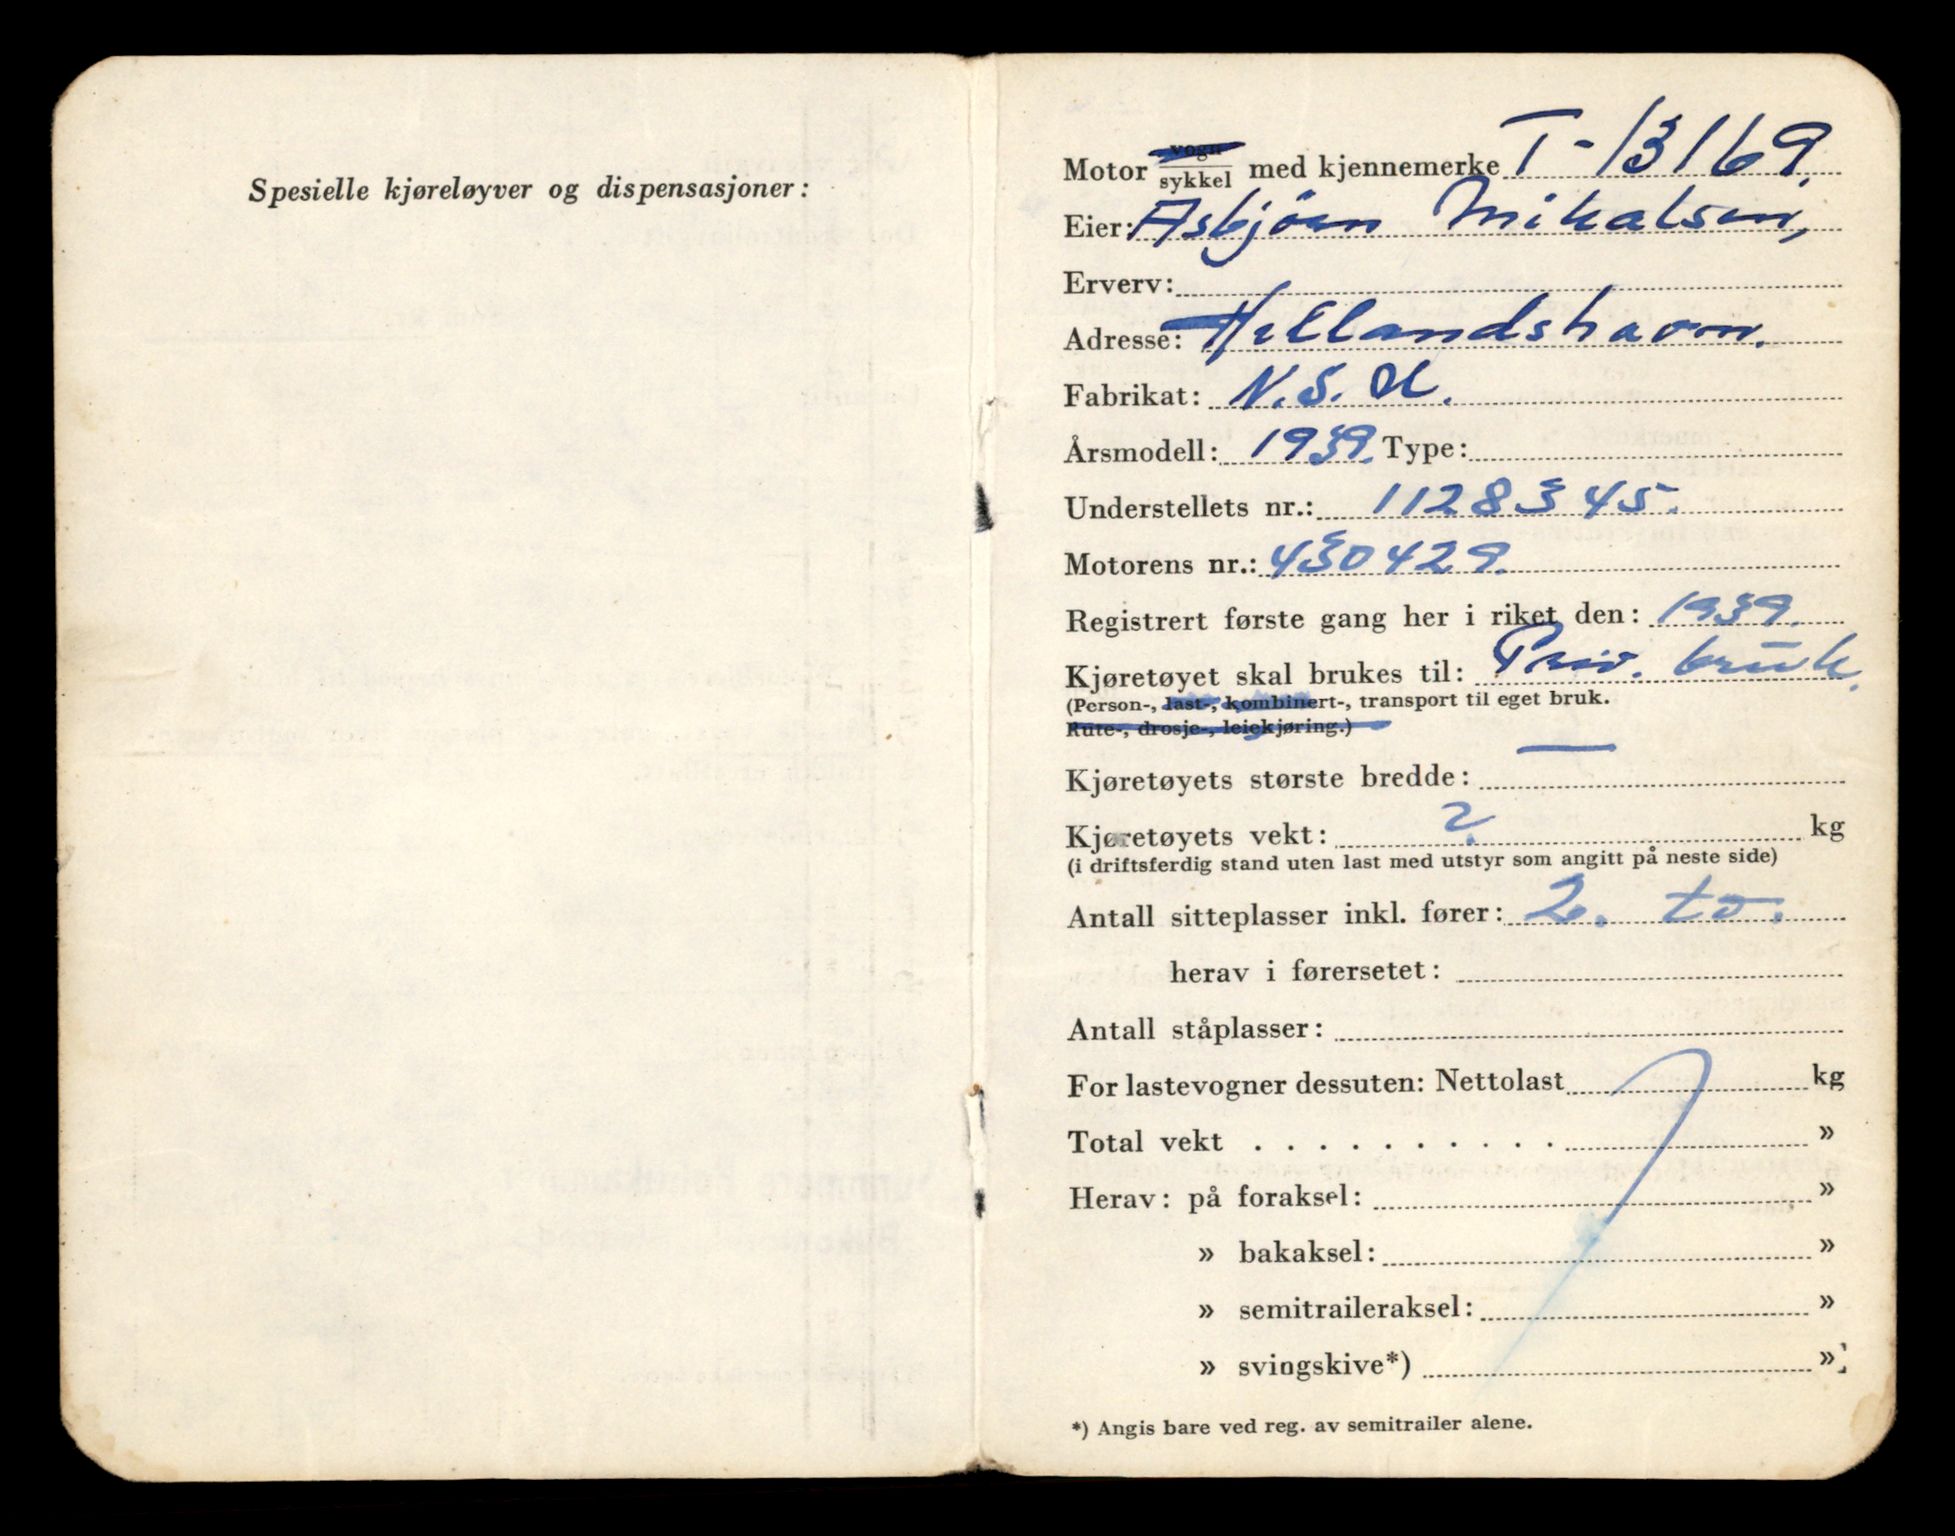 Spesielle kjøreløyver og dispensasjoner:
Motor vogn/sykkel med kjennemerke T-13169.
Eier: Asbjörn Mikalsen,
Erverv:
Adresse: Hellandshavn.
Fabrikat: N.S.U.
Årsmodell: 1939. Type:
Understellets nr.: 1128345.
Motorens nr.: 430429.
Registrert første gang her i riket den: 1939.
Kjøretøyet skal brukes til: Priv. brūk.
(Person-, last-, kombinert-, transport til eget bruk.
Rute-, drosje-, leiekjøring.)
Kjøretøyets største bredde: —
Kjøretøyets vekt: ? kg
(i driftsferdig stand uten last med utstyr som angitt på neste side)
Antall sitteplasser inkl. fører: 2. to.
herav i førersetet:
Antall ståplasser:
For lastevogner dessuten: Nettolast kg
Total vekt . . . . . . . . . . »
Herav: på foraksel: »
» bakaksel: »
» semitraileraksel: »
» svingskive*) »
*) Angis bare ved reg. av semitrailer alene.